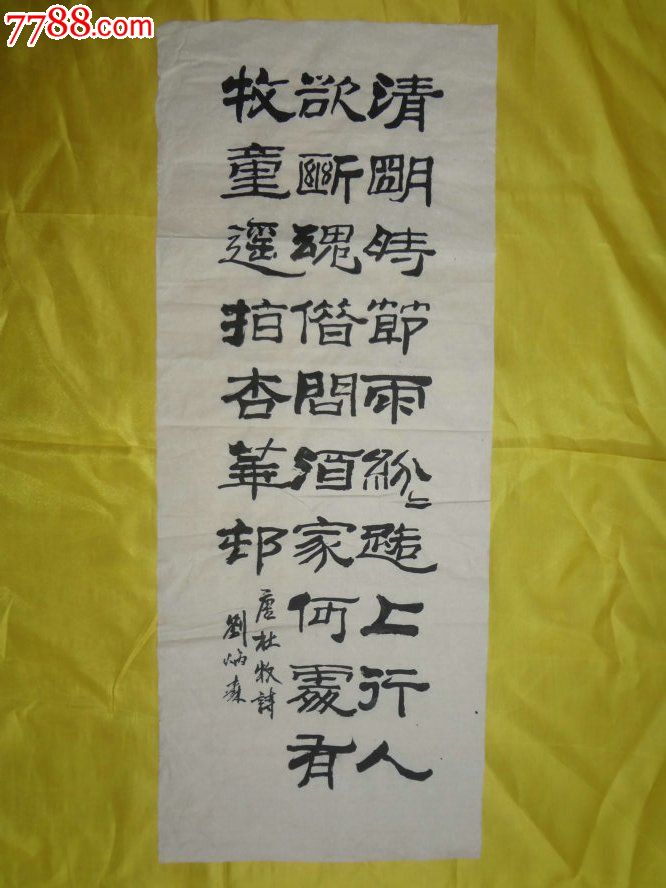 7788.com
清明時節雨紛〻路上行人
欲斷魂借問酒家何處有
牧童遥指杏華邨
唐杜牧詩
劉炳森